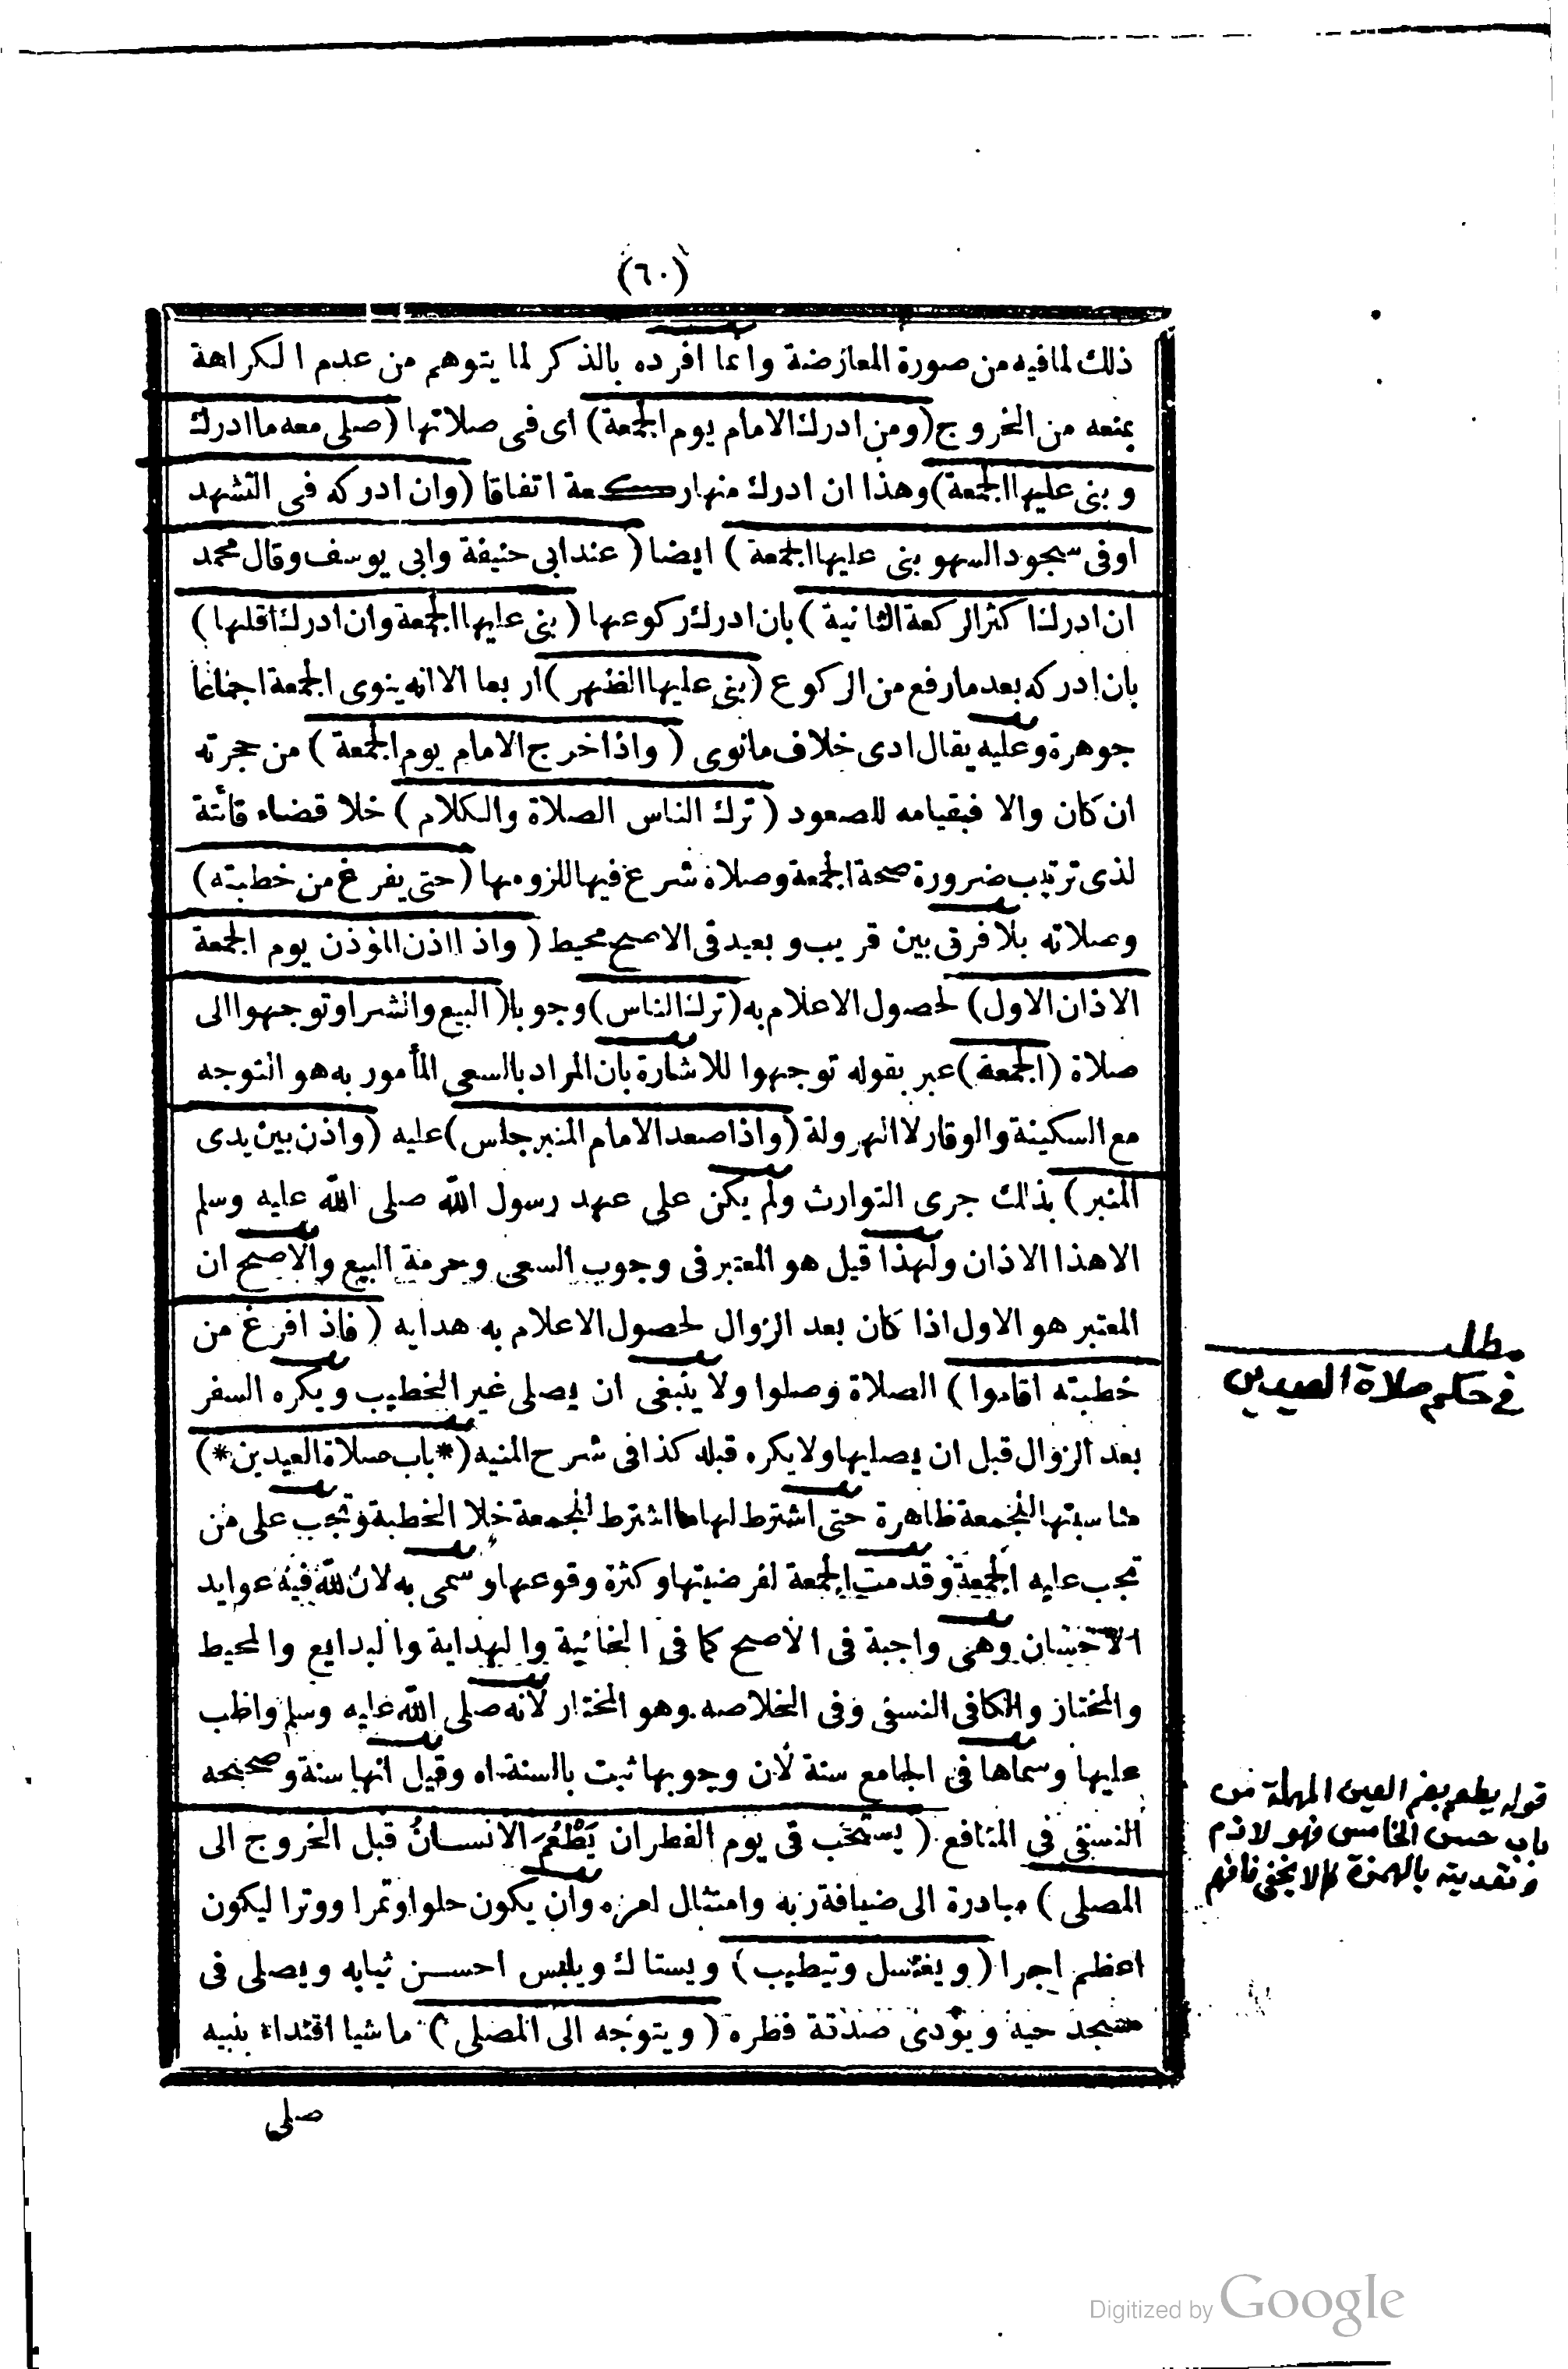 (٦٠)
ذلك لمافيه من صورة المعارضة وانما افرده بالذكر لما يتوهم من عدم الكراهة
بمنعه من الخروج (ومن ادرك الامام يوم الجمعة) اى فى صلاتها (صلى معه ما ادرك
وبنى عليها الجمعة) وهذا ان ادرك منها ركعة اتفاقا (وان ادركه فى التشهد
اوفى سجود السهو بنى عليها الجمعة) ايضا (عند ابى حنيفة وابى يوسف وقال محمد
ان ادرك اكثر الركعة الثانية) بان ادرك ركوعها (بنى عليها الجمعة وان ادرك اقلها)
بان ادركه بعد مارفع من الركوع (بنى عليها الظهر) اربعا الا انه ينوى الجمعة اجماعا
جوهرة وعليه يقال ادى خلاف مانوى (واذا خرج الامام يوم الجمعة) من حجرته
ان كان والا فبقيامه للصعود (ترك الناس الصلاة والكلام) خلا قضاء فائتة
لذى ترتيب ضرورة صحة الجمعة وصلاة شرع فيها للزومها (حتى يفرغ من خطبته)
وصلاته بلا فرق بين قريب وبعيد فى الاصح محيط (واذا اذن المؤذن يوم الجمعة
الاذان الاول) لحصول الاعلام به (ترك الناس) وجوبا (البيع والشرا وتوجهوا الى
صلاة (الجمعة) عبر بقوله توجهوا للاشارة بان المراد بالسعى المأمور به هو التوجه
مع السكينة والوقار لا الهرولة (واذا صعد الامام المنبر جلس) عليه (واذن بين يدى
المنبر) بذلك جرى التوارث ولم يكن على عهد رسول الله صلى الله عليه وسلم
الا هذا الاذان ولهذا قيل هو المعتبر فى وجوب السعى وحرمة البيع والاصح ان
المعتبر هو الاول اذا كان بعد الزوال لحصول الاعلام به هدايه (فاذا فرغ من
خطبته اقاموا) الصلاة وصلوا ولا ينبغى ان يصلى غير الخطيب ويكره السفر
بعد الزوال قبل ان يصليها ولا يكره قبله كذا فى شرح المنيه (*باب صلاة العيدين*)
مناسبتها للجمعة ظاهرة حتى اشترط لها ما اشترط للجمعة خلا الخطبة وتجب على من
تجب عليه الجمعة وقدمت الجمعة لفرضيتها وكثرة وقوعها وسمى به لان لله فيه عوايد
الاحسان وهى واجبة فى الاصح كما فى الخانية والهداية والبدايع والمحيط
والمختار والكافى النسفى وفى الخلاصه وهو المختار لانه صلى الله عليه وسلم واظب
عليها وسماها فى الجامع سنة لان وجوبها ثبت بالسنة اه وقيل انها سنة وصححه
النسفى فى المنافع (يستحب فى يوم الفطر ان يَطْعُمَ الانسانُ قبل الخروج الى
المصلى) مبادرة الى ضيافة ربه وامتثال امره وان يكون حلوا وتمرا ووترا ليكون
اعظم اجرا (ويغتسل وتيطيب) ويستاك ويلبس احسن ثيابه ويصلى فى
مسجد حيه ويؤدى صدقة فطره (ويتوجه الى المصلى) ماشيا اقتداء بنبيه
صلى
مطلب
فى حكم صلاة العيدين
قوله يطعم بضم العين المهملة من
باب حسن الخامس فهو لازم
وتعديته بالهمزة كما لا يخفى فافهم
Digitized by Google